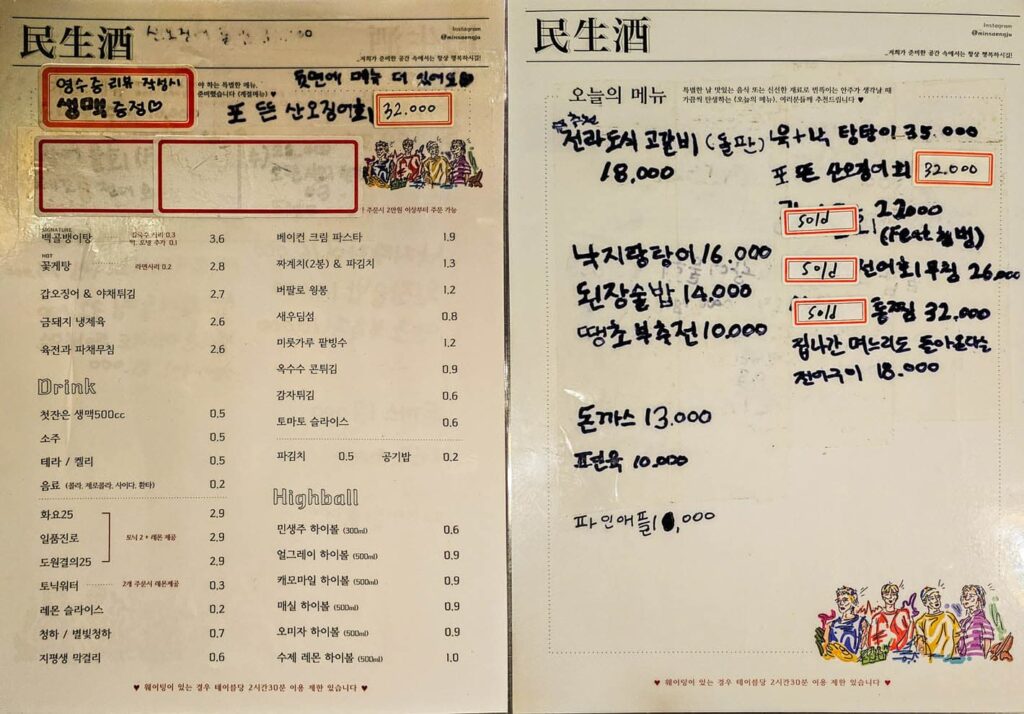 民生酒
Instagram
@minsaengju
_저희가 준비한 공간 속에서는 항상 행복하시길!
영수증 리뷰 작성시
생맥 증정♡
야 하는 특별한 메뉴.
준비했습니다 (계절메뉴) ♥
뒷면에 메뉴 더 있어요♥
포 뜬 산오징어회 32.000
! 주문시 2만원 이상부터 주문 가능
SIGNATURE
백골뱅이탕 칼국수 사리 0.3 3.6
HOT
꽃게탕 라면사리 0.2 2.8
갑오징어 & 야채튀김 2.7
금돼지 냉제육 2.6
육전과 파채무침 2.6
Drink
첫잔은 생맥500cc 0.5
소주 0.5
테라 / 켈리 0.5
음료 (콜라, 제로콜라, 사이다, 환타) 0.2
화요25 2.9
일품진로 2.9
도원결의25 2.9
토닉 2 + 레몬 제공
토닉워터 2개 주문시 레몬제공 0.3
레몬 슬라이스 0.2
청하 / 별빛청하 0.7
지평생 막걸리 0.6
베이컨 크림 파스타 1.9
짜계치(2봉) & 파김치 1.3
버팔로 윙봉 1.2
새우딤섬 0.8
미룻가루 팥빙수 1.2
옥수수 콘튀김 0.9
감자튀김 0.6
토마토 슬라이스 0.6
파김치 0.5 공기밥 0.2
Highball
민생주 하이볼 (300ml) 0.6
얼그레이 하이볼 (500ml) 0.9
캐모마일 하이볼 (500ml) 0.9
매실 하이볼 (500ml) 0.9
오미자 하이볼 (500ml) 0.9
수제 레몬 하이볼 (500ml) 1.0
♥ 웨이팅이 있는 경우 테이블당 2시간30분 이용 제한 있습니다 ♥
民生酒
Instagram
@minsaengju
_저희가 준비한 공간 속에서는 항상 행복하시길!
오늘의 메뉴
특별한 날 맛있는 음식 또는 신선한 재료로 번뜩이는 안주가 생각날 때
가끔씩 탄생하는 (오늘의 메뉴), 여러분들께 추천드립니다 ♥
추천
전라도식 고갈비 (돌판)
18,000
낙지탕탕이 16.000
된장술밥 14.000
땡초부추전 10.000
돈까스 13.000
표면육 10.000
파인애플 ,000
육+낙 탕탕이 35.000
포 뜬 산오징어회 32.000
sold 22000
sold 선어회무침 26.000
sold 통찜 32.000
집나간 며느리도 돌아온다는
전어구이 18.000
♥ 웨이팅이 있는 경우 테이블당 2시간30분 이용 제한 있습니다 ♥